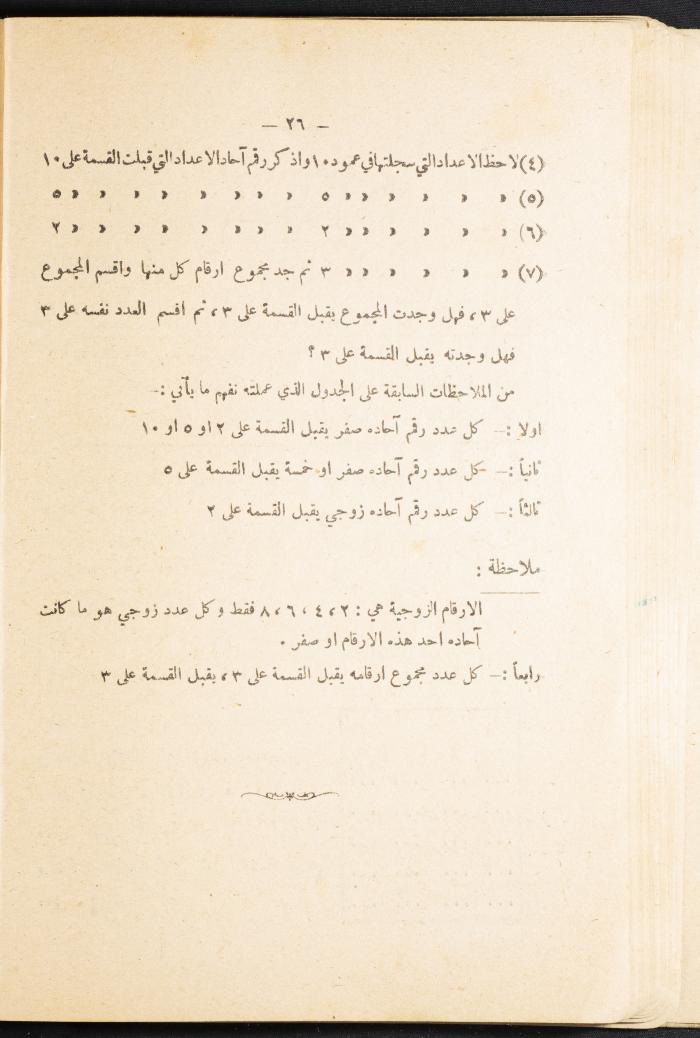 — ٢٦ —
(٤) لاحظ الاعداد التي سجلتها في عمود ١٠ واذكر رقم آحاد الاعداد التي قبلت القسمة على ١٠
(٥) » » » » » » ٥ » » » » » » » » ٥
(٦) » » » » » » ٢ » » » » » » » » ٢
(٧) » » » » » » ٣ ثم جد مجموع ارقام كل منها واقسم المجموع
على ٣ ، فهل وجدت المجموع يقبل القسمة على ٣ ، ثم اقسم العدد نفسه على ٣
فهل وجدته يقبل القسمة على ٣ ؟
من الملاحظات السابقة على الجدول الذي عملته نفهم ما يأتي :—
اولا :— كل عدد رقم آحاده صفر يقبل القسمة على ٢ او ٥ او ١٠
ثانياً :— كل عدد رقم آحاده صفر او خمسة يقبل القسمة على ٥
ثالثاً :— كل عدد رقم آحاده زوجي يقبل القسمة على ٢
ملاحظة :
الارقام الزوجية هي : ٢ ، ٤ ، ٦ ، ٨ فقط وكل عدد زوجي هو ما كانت
آحاده احد هذه الارقام او صفر .
رابعاً :— كل عدد مجموع ارقامه يقبل القسمة على ٣ ، يقبل القسمة على ٣